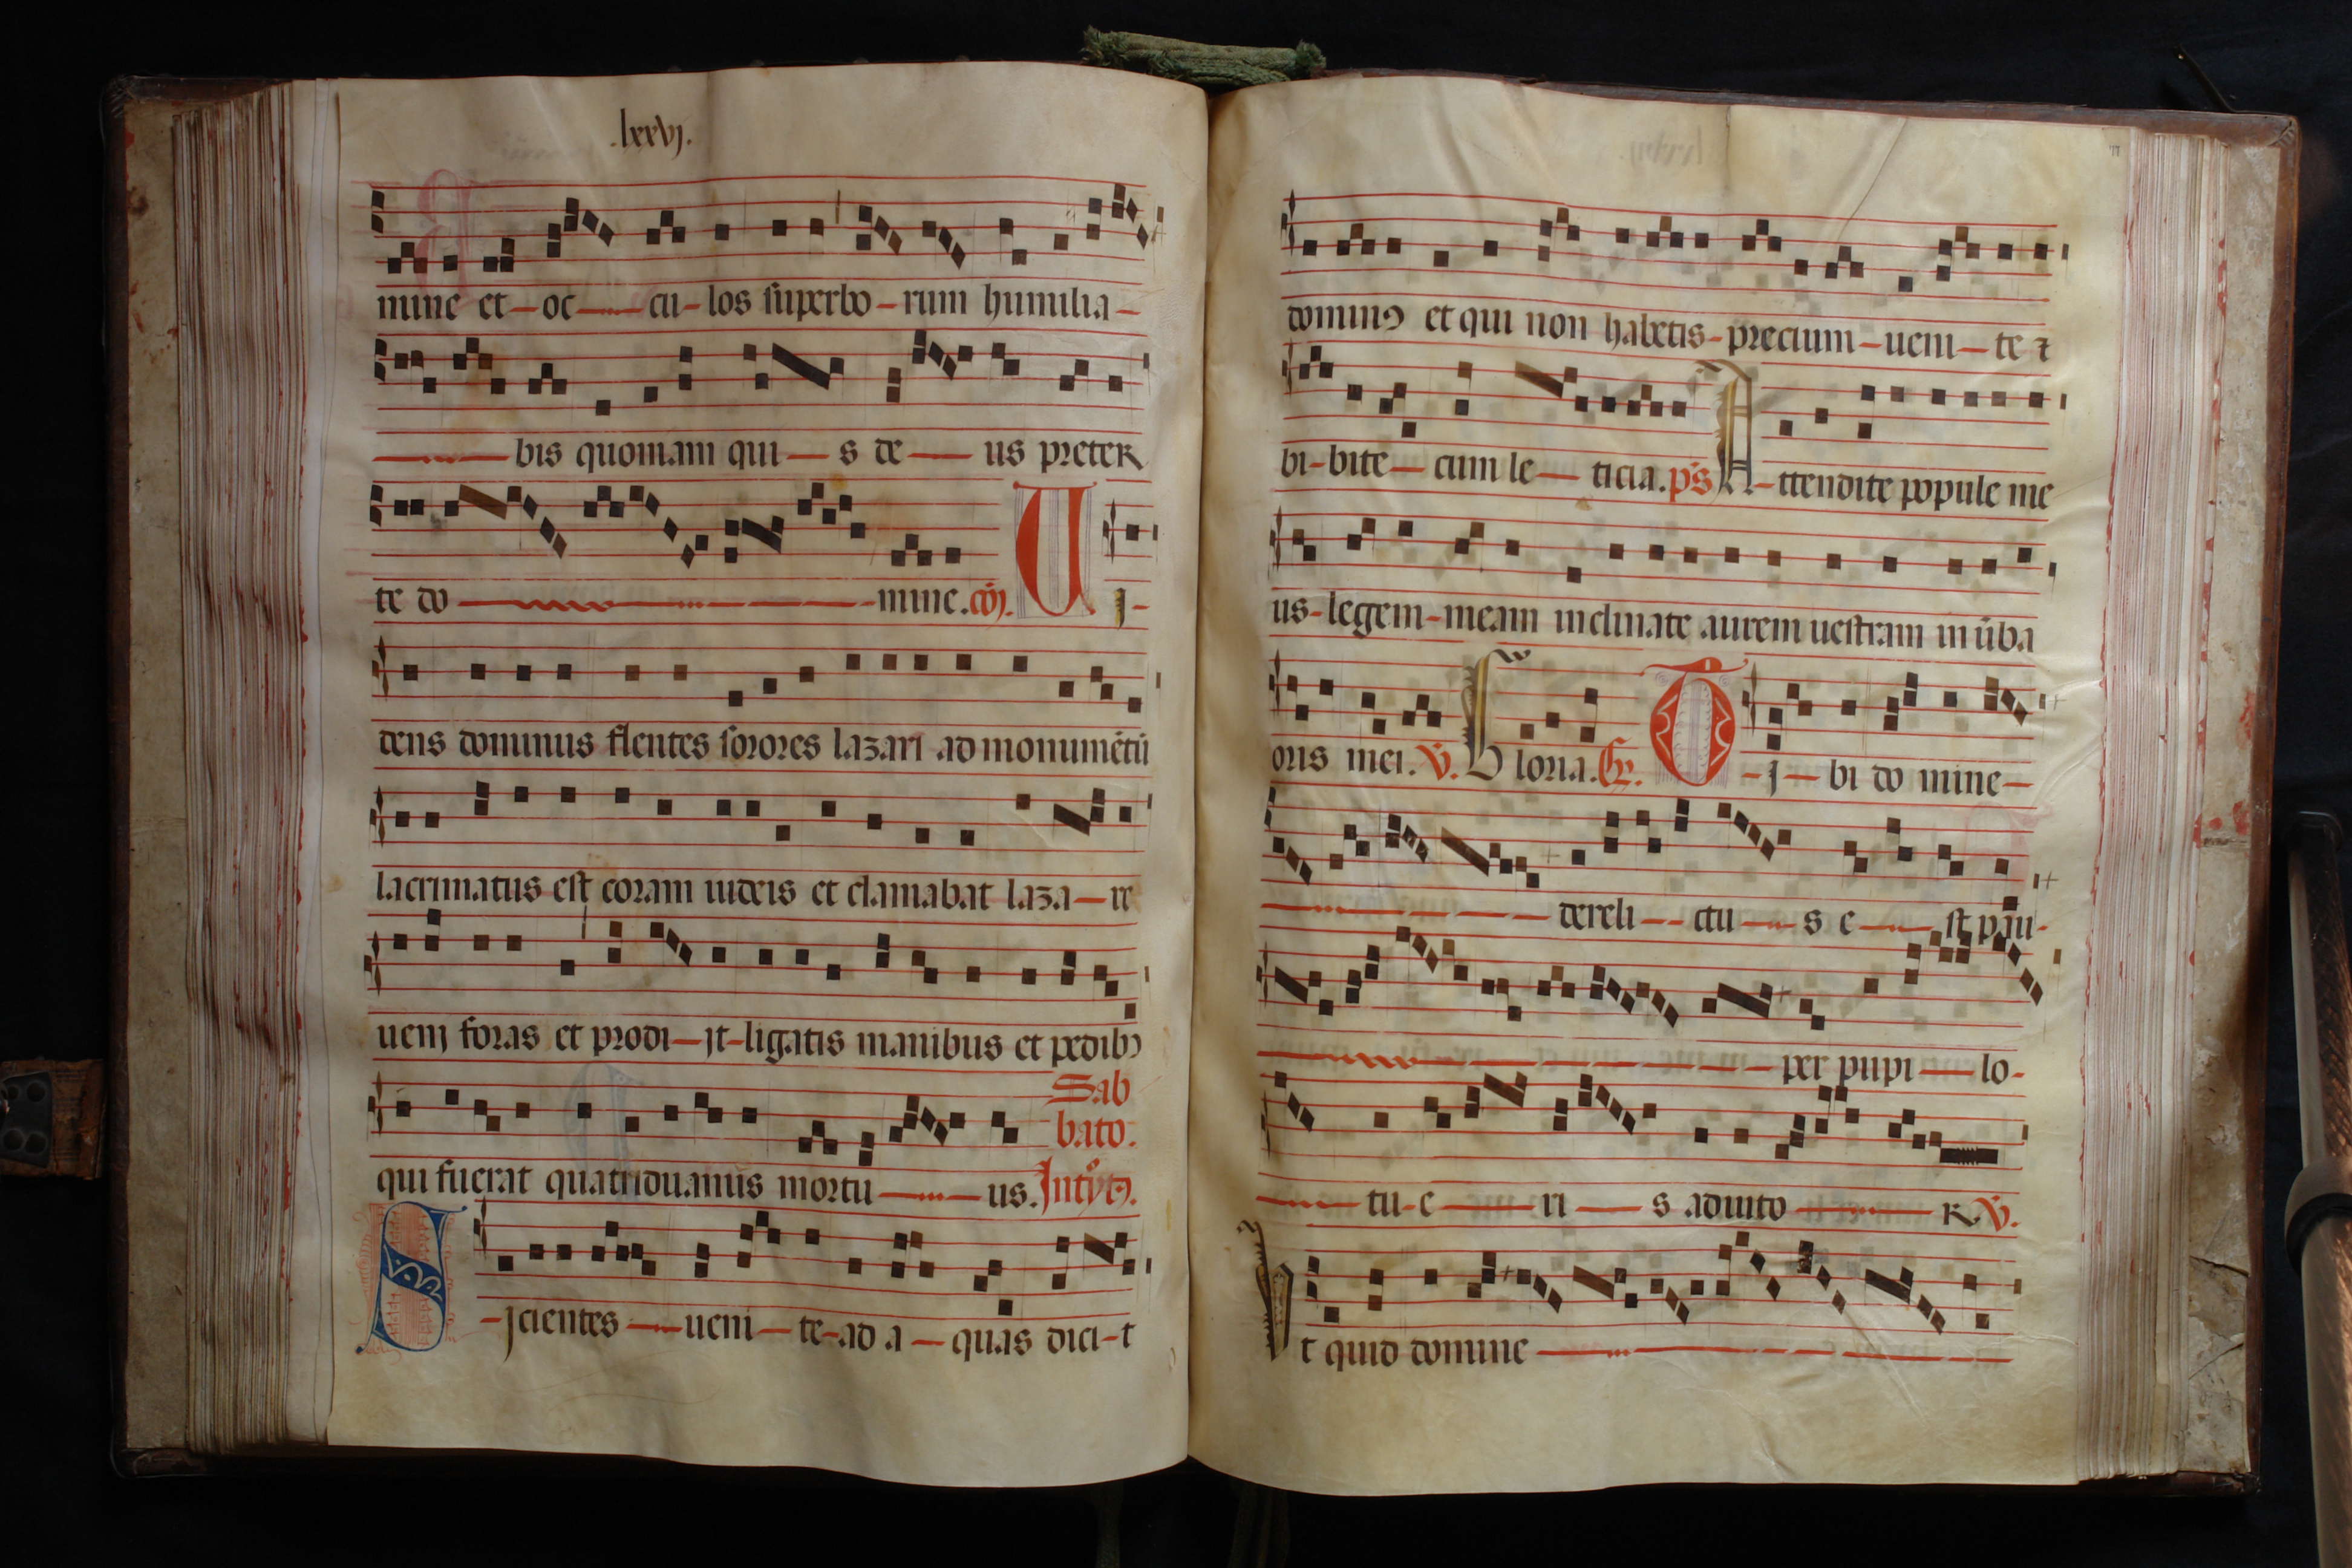 .lxxvj.
mine et oc cu los superbo rum humilia
bis quoniam qui s de us preter
te do mine. cōj. U j
dens dominus flentes sorores lazari ad monumētū
lacrimatus est coram iudeis et clamabat laza re
uenj foras et prodi jt ligatis manibus et pedibꝰ
Sab
bato.
qui fuerat quatriduanus mortu us. Introytꝰ.
S jcientes ueni te ad a quas dici t
dominꝰ et qui non habetis precium ueni te ⁊
bi bite cum le ticia. ps̄ A ttendite popule me
us legem meam inclinate aurem uestram in ūba
oris mei. V̄. G loria. Gr̄. T j bi do mine
dereli ctu s e st pau
per pupi lo
tu e ri s adiuto R V̄.
U t quid domine